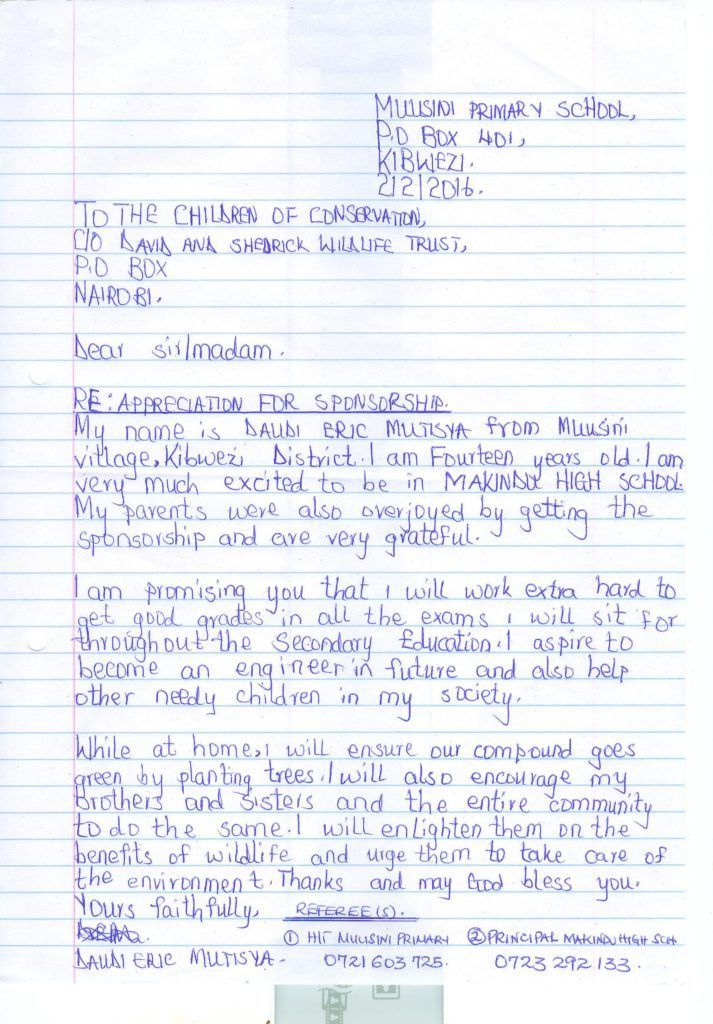 MUUSINI PRIMARY SCHOOL,
P.O BOX 401,
KIBWEZI.
2/2/2016.
TO THE CHILDREN OF CONSERVATION,
C/O DAVID AND SHEDRICK WILDLIFE TRUST,
P.O BOX
NAIROBI.
Dear sir/madam.
RE: APPRECIATION FOR SPONSORSHIP.
My name is DAUDI ERIC MUTISYA from Muusini
village, Kibwezi District. I am Fourteen years old. I am
very much excited to be in MAKINDU HIGH SCHOOL.
My parents were also overjoyed by getting the
sponsorship and are very grateful.
I am promising you that i will work extra hard to
get good grades in all the exams i will sit for
throughout the Secondary Education. I aspire to
become an engineer in future and also help
other needy children in my society.
While at home, i will ensure our compound goes
green by planting trees. I will also encourage my
brothers and sisters and the entire community
to do the same. I will enlighten them on the
benefits of wildlife and urge them to take care of
the environment. Thanks and may God bless you.
Yours faithfully, REFEREE(S).
① H/T MUUSINI PRIMARY ② PRINCIPAL MAKINDU HIGH SCH
DAUDI ERIC MUTISYA. 0721 603 725. 0723 292 133.